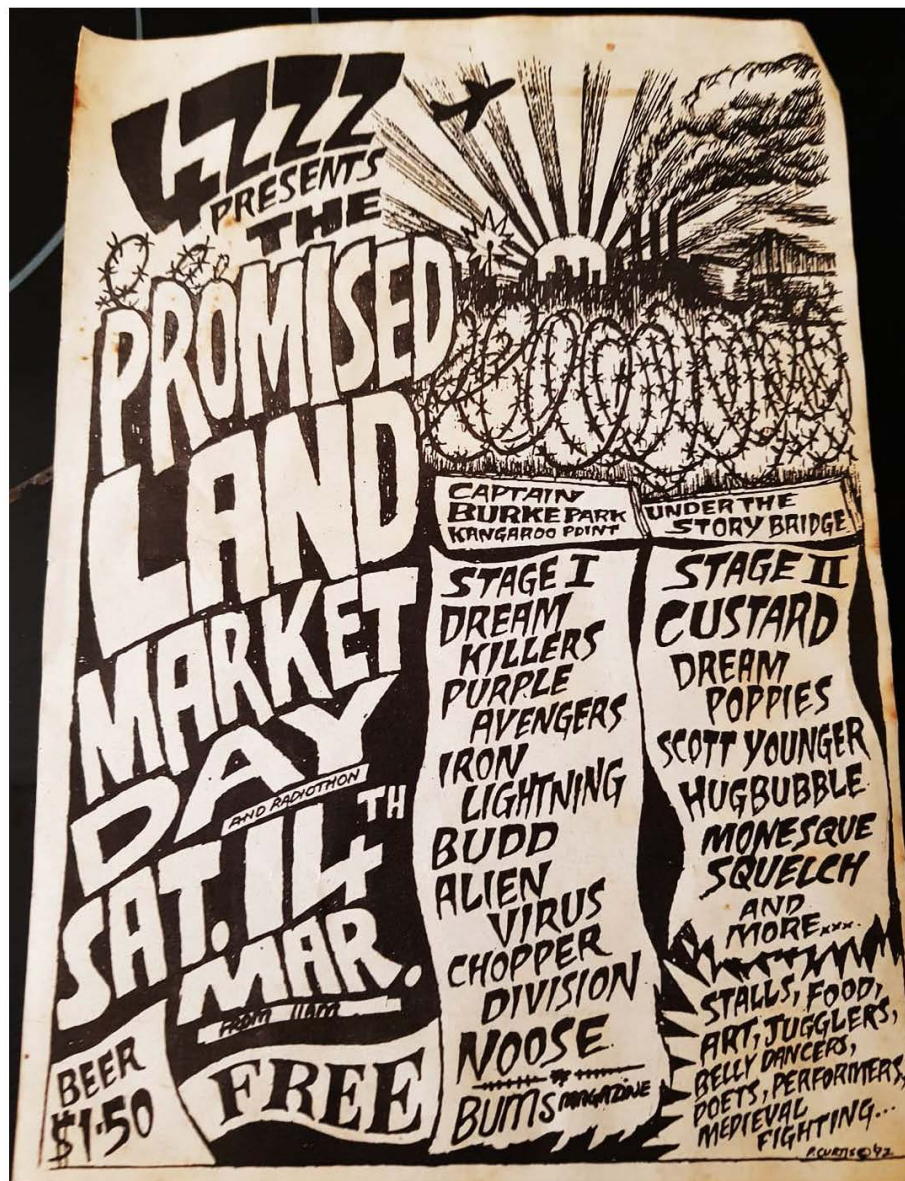 4ZZZ
PRESENTS
THE
PROMISED
LAND
MARKET
DAY
AND RADIOTHON
SAT. 14TH
MAR.
FROM 11am
BEER
$1.50
FREE
CAPTAIN
BURKE PARK
KANGAROO POINT
UNDER THE
STORY BRIDGE
STAGE I
DREAM
KILLERS
PURPLE
AVENGERS
IRON
LIGHTNING
BUDD
ALIEN
VIRUS
CHOPPER
DIVISION
NOOSE
BUMS MAGAZINE
STAGE II
CUSTARD
DREAM
POPPIES
SCOTT YOUNGER
HUGBUBBLE
MONESQUE
SQUELCH
AND
MORE...
STALLS, FOOD,
ART, JUGGLERS,
BELLY DANCERS,
POETS, PERFORMERS,
MEDIEVAL
FIGHTING...
P.CURTIS © '92